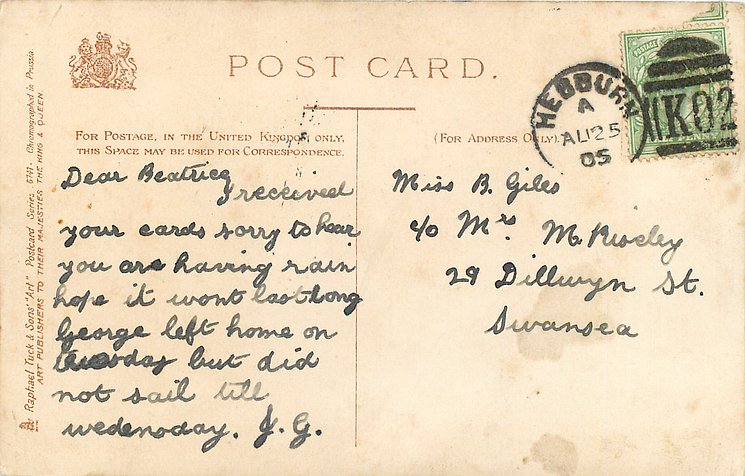 POST CARD.
FOR POSTAGE, IN THE UNITED KINGDOM ONLY,
THIS SPACE MAY BE USED FOR CORRESPONDENCE.
(FOR ADDRESS ONLY).
HEBBURN
A
AU 25
05
K02
POSTAGE
Raphael Tuck & Sons' "Art" Postcard Series 6741. Chromographed in Prussia.
ART PUBLISHERS TO THEIR MAJESTIES THE KING & QUEEN.
Dear Beatrice
I received
your cards sorry to hear
you are having rain
hope it wont last long
George left home on
but did
not sail till
wedenosday. J. G.
Miss B. Giles
c/o Mrs M.
29 Dillwyn St.
Swansea